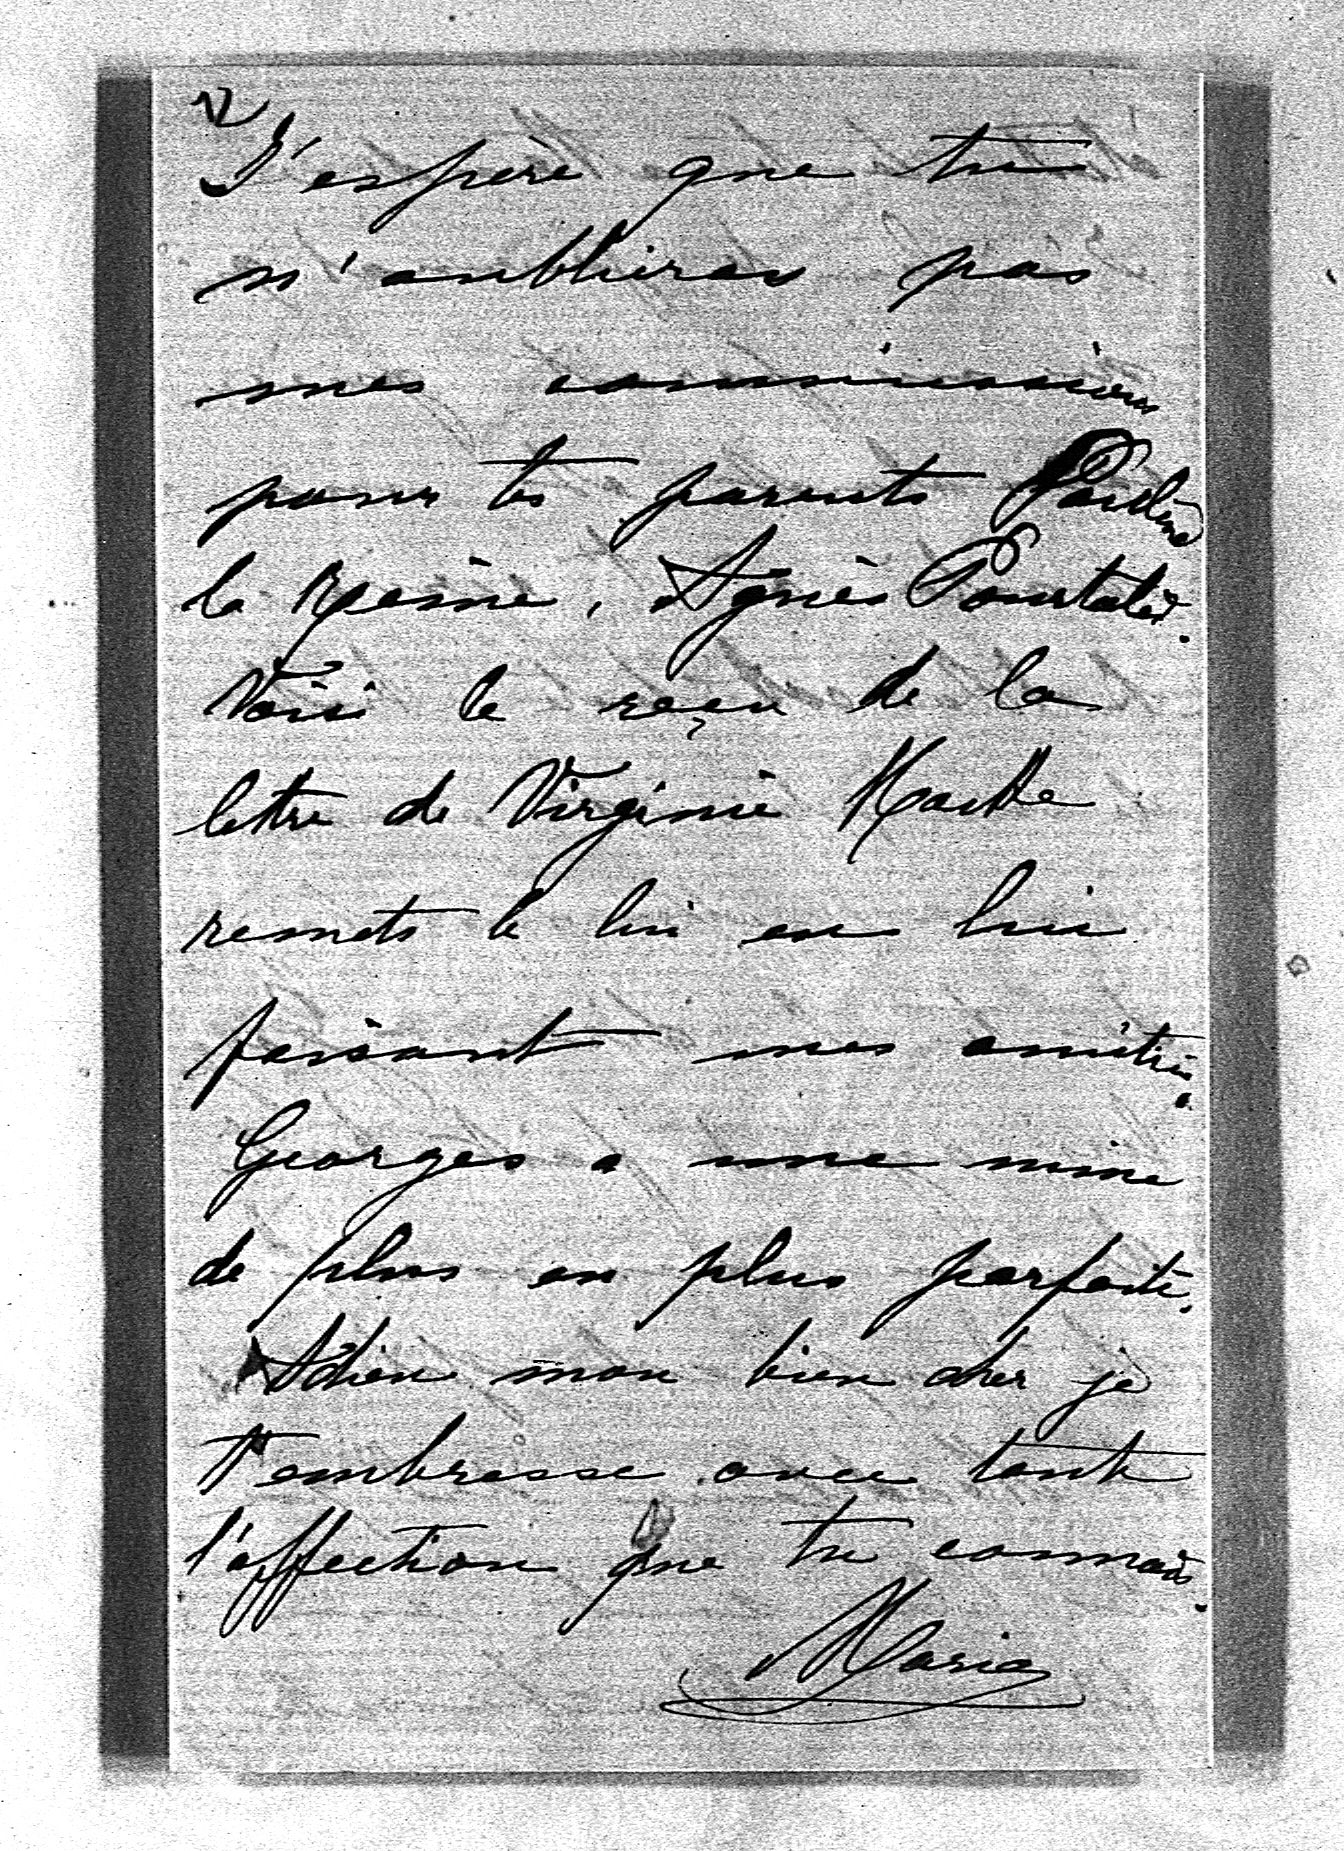 J'espère que tu
n'oublieras pas
mes commissions
pour tes parents
la Reine, Agnès Pourtalès.
Voici le reçu de la
lettre de Virginie
remets le lui en lui
faisant mes amitiés.
Georges a une mine
de plus en plus parfaite.
Adieu mon bien cher je
t'embrasse avec toute
l'affection que tu connais.
Maria